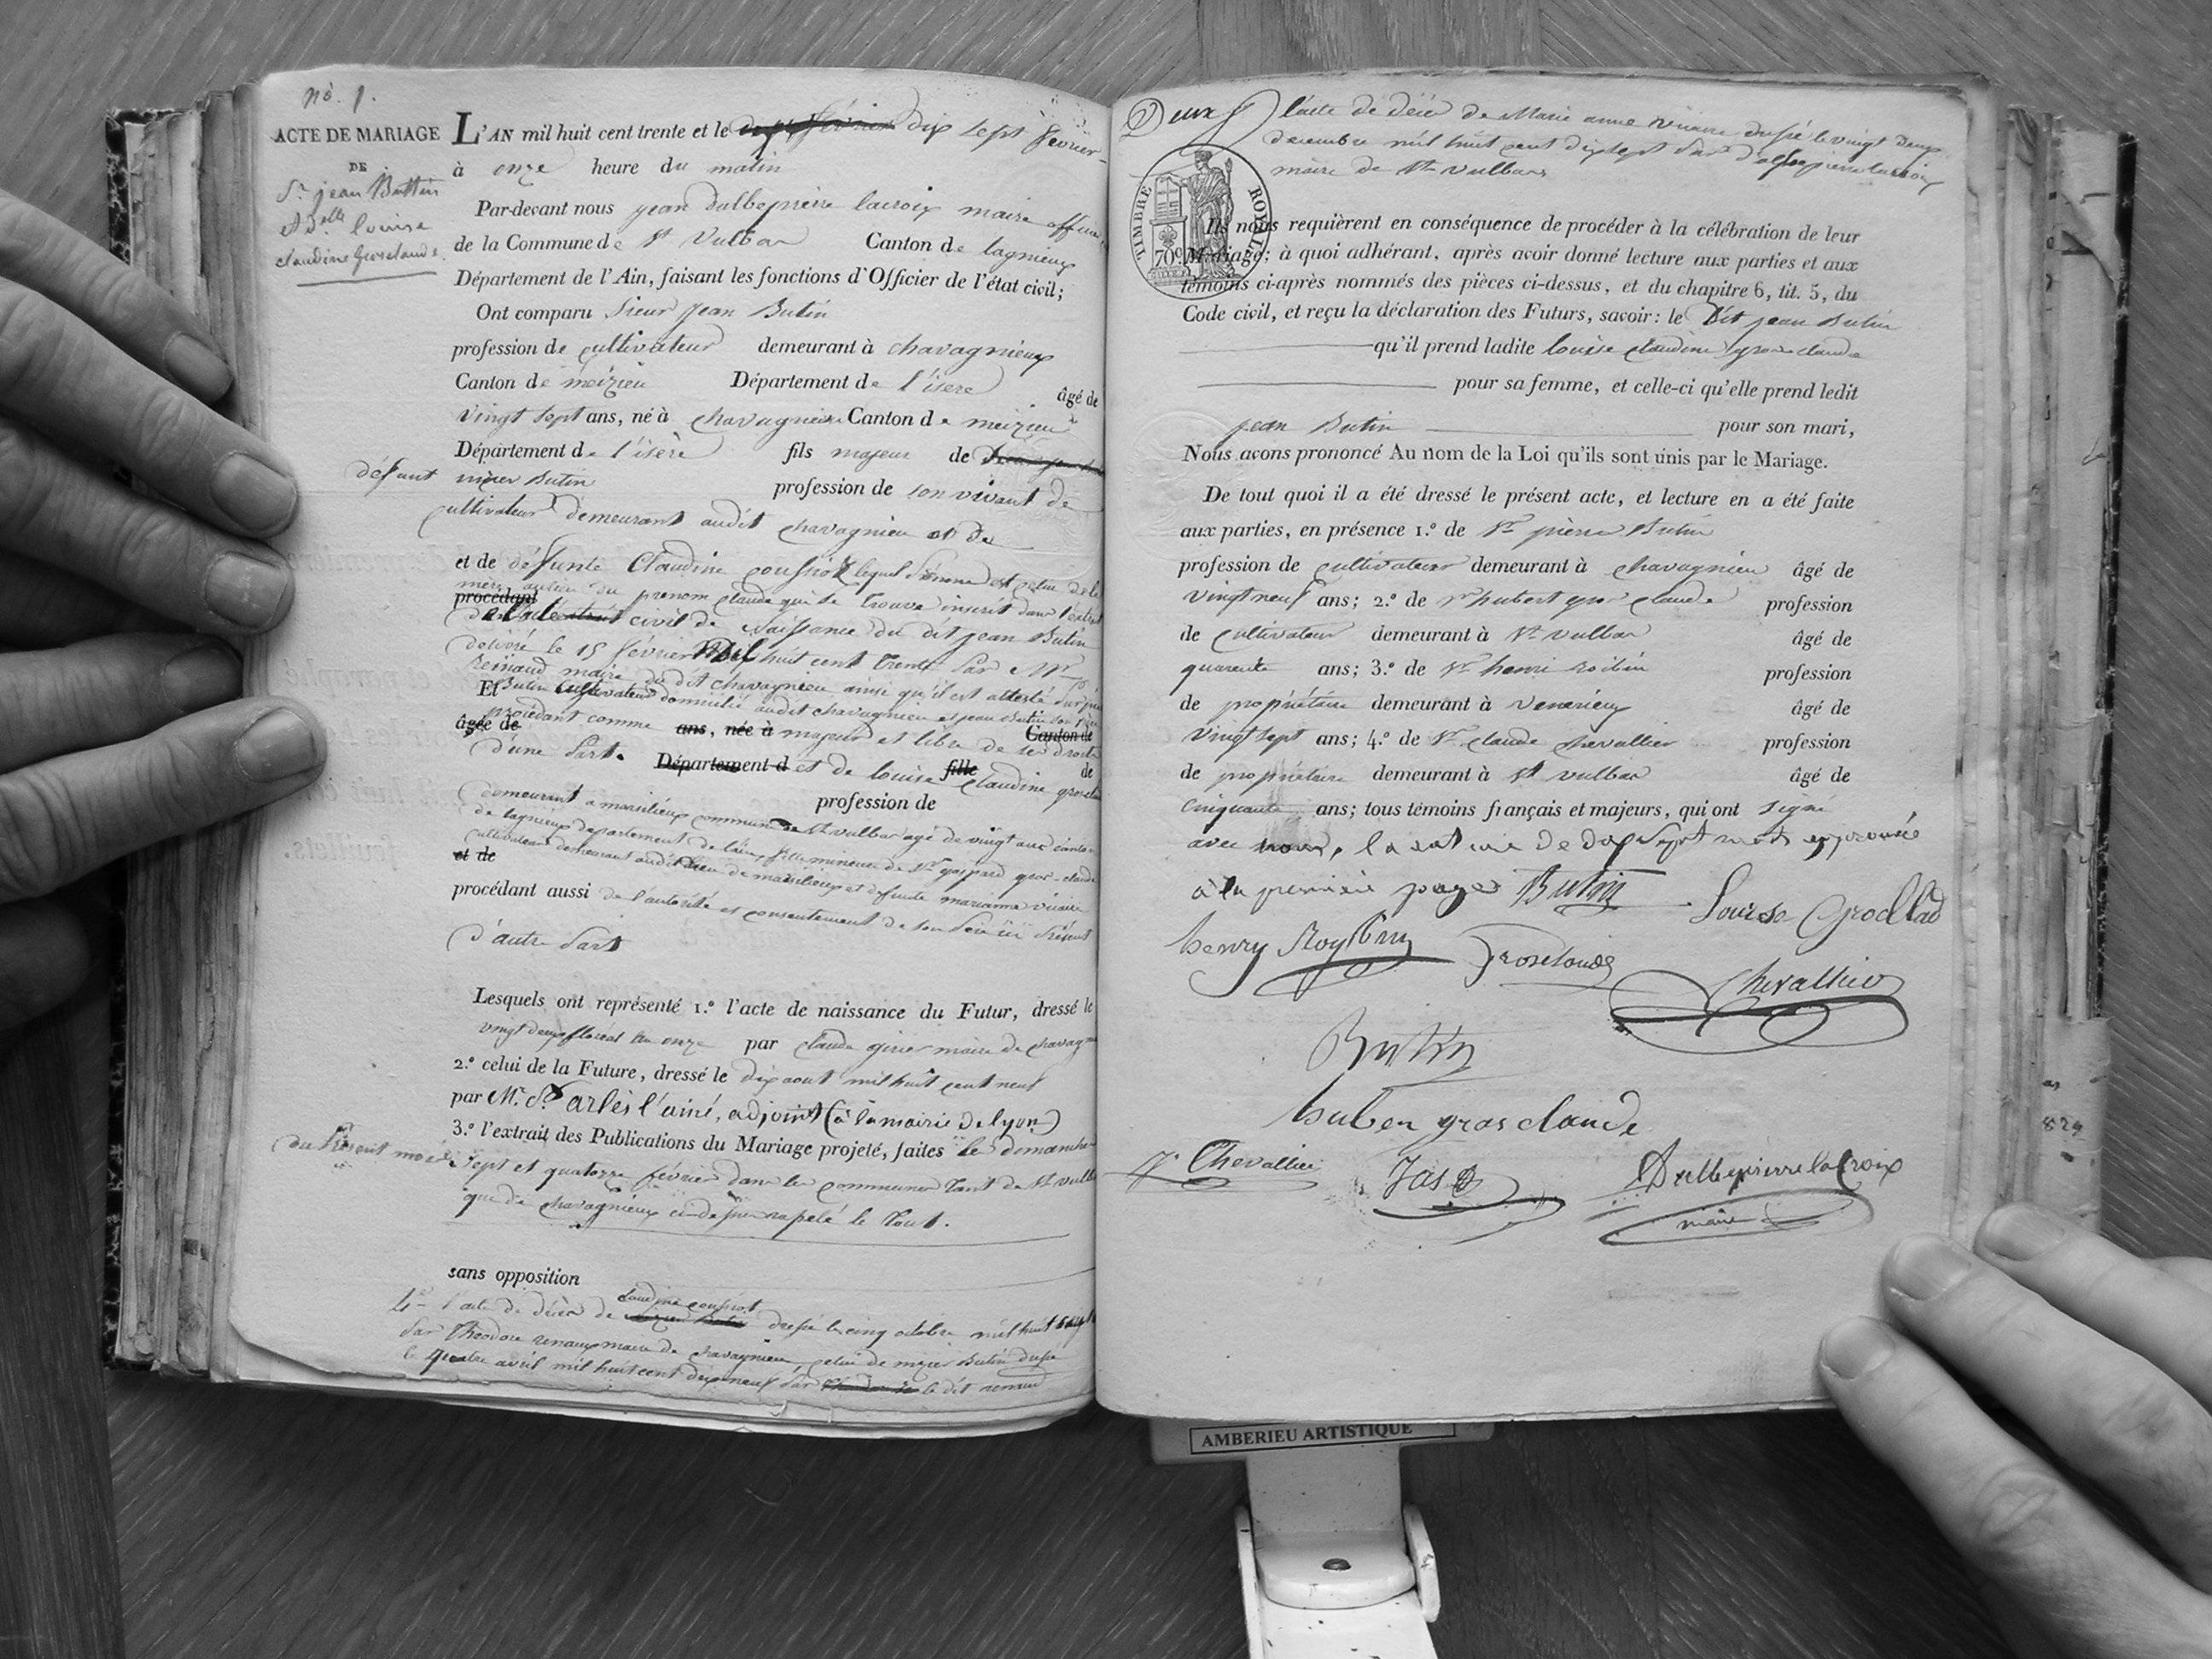 nò. 1.
ACTE DE MARIAGE
DE
Sr. jean Buttin
et Dlle louise
claudine Grosclaude.
L'AN mil huit cent trente et le dix sept février
à onze heure du matin
Par-devant nous jean dalbepierre lacroix maire officier
de la Commune de St Vulbas Canton de lagnieux
Département de l'Ain, faisant les fonctions d'Officier de l'état civil;
Ont comparu Sieur jean Butin
profession de cultivateur demeurant à chavagnieux
Canton de meizieu Département de l'isere âgé de
vingt sept ans, né à chavagnieu Canton de meizieu
Département de l'isère fils majeur de
défunt Butin profession de son vivant de
cultivateur demeurant audit chavagnieu et de
et de défunte Claudine lequel prénom est celui de la
mère au lieu du prenom claude qui se trouve inscrit dans l'extrait
procédant
de l'acte civil de Naissance du dit jean Butin
délivré le 15 février Mil huit cent trente par Mr
reinaud maire du dit chavagnieu ainsi qu'il est attesté par
Et Butin cultivateur domicilié audit chavagnieu et jean Butin son
procédant comme majeur et libre de ses droits
âgée de ans, née à Canton de
d'une part. Département d et de louise fille claudine de
demeurant a marsilieux commune de St vulbas agé de vingt ans canton
profession de
de lagnieux departement de l'ain, fille mineure de Sr gaspard gros-claude
cultivateur demeurant audit lieu de marsilieux et defunte marianne
et de
procédant aussi de l'autorité et consentement de son père ici présent
d'autre part
Lesquels ont représenté 1.º l'acte de naissance du Futur, dressé le
vingt deux floréal an onze par claude girier maire de
2.º celui de la Future, dressé le dix aout mil huit cent neuf
par Mr. St. arlès l'ainé, adjoint (à la mairie de lyon)
3.º l'extrait des Publications du Mariage projeté, faites le dimanche
du présent mois sept et quatorze février dans les communes tant de St
que de chavagnieux ci-dessus rapelé le tout.
sans opposition
claudine
4º l'acte de décès de dressé le cinq octobre mil huit
par Theodore maire de chavagnieu, celui de Butin dressé
le quatre avril mil huit cent dix neuf par le dit
Deux l'acte de décès de Marie anne dressé le vingt deux
decembre mil huit cent dix sept par dalbepierre lacroix
maire de St Vulbas
TIMBRE ROYAL
70c.
Ils nous requièrent en conséquence de procéder à la célébration de leur
Mariage; à quoi adhérant, après avoir donné lecture aux parties et aux
témoins ci-après nommés des pièces ci-dessus, et du chapitre 6, tit. 5, du
Code civil, et reçu la déclaration des Futurs, savoir: le Dit jean Butin
qu'il prend ladite louise claudine gros claude
pour sa femme, et celle-ci qu'elle prend ledit
jean Butin pour son mari,
Nous avons prononcé Au nom de la Loi qu'ils sont unis par le Mariage.
De tout quoi il a été dressé le présent acte, et lecture en a été faite
aux parties, en présence 1.º de Sr pierre Butin
profession de cultivateur demeurant à chavagnieu âgé de
vingt neuf ans; 2.º de Sr hubert gros claude profession
de cultivateur demeurant à St vulbas âgé de
quarente ans; 3.º de Sr henri profession
de propriétaire demeurant à venerieux âgé de
vingt sept ans; 4.º de Sr claude chevallier profession
de propriétaire demeurant à St vulbas âgé de
cinquante ans; tous témoins français et majeurs, qui ont signé
avec nous, la rature de dix sept mots approuvée
à la première page Butin
Louise
henry
Grosclaude
Chevallier
Butin
huber gros claude
Chevallier
Jas
Dalbepierre laCroix
maire
AMBERIEU ARTISTIQUE